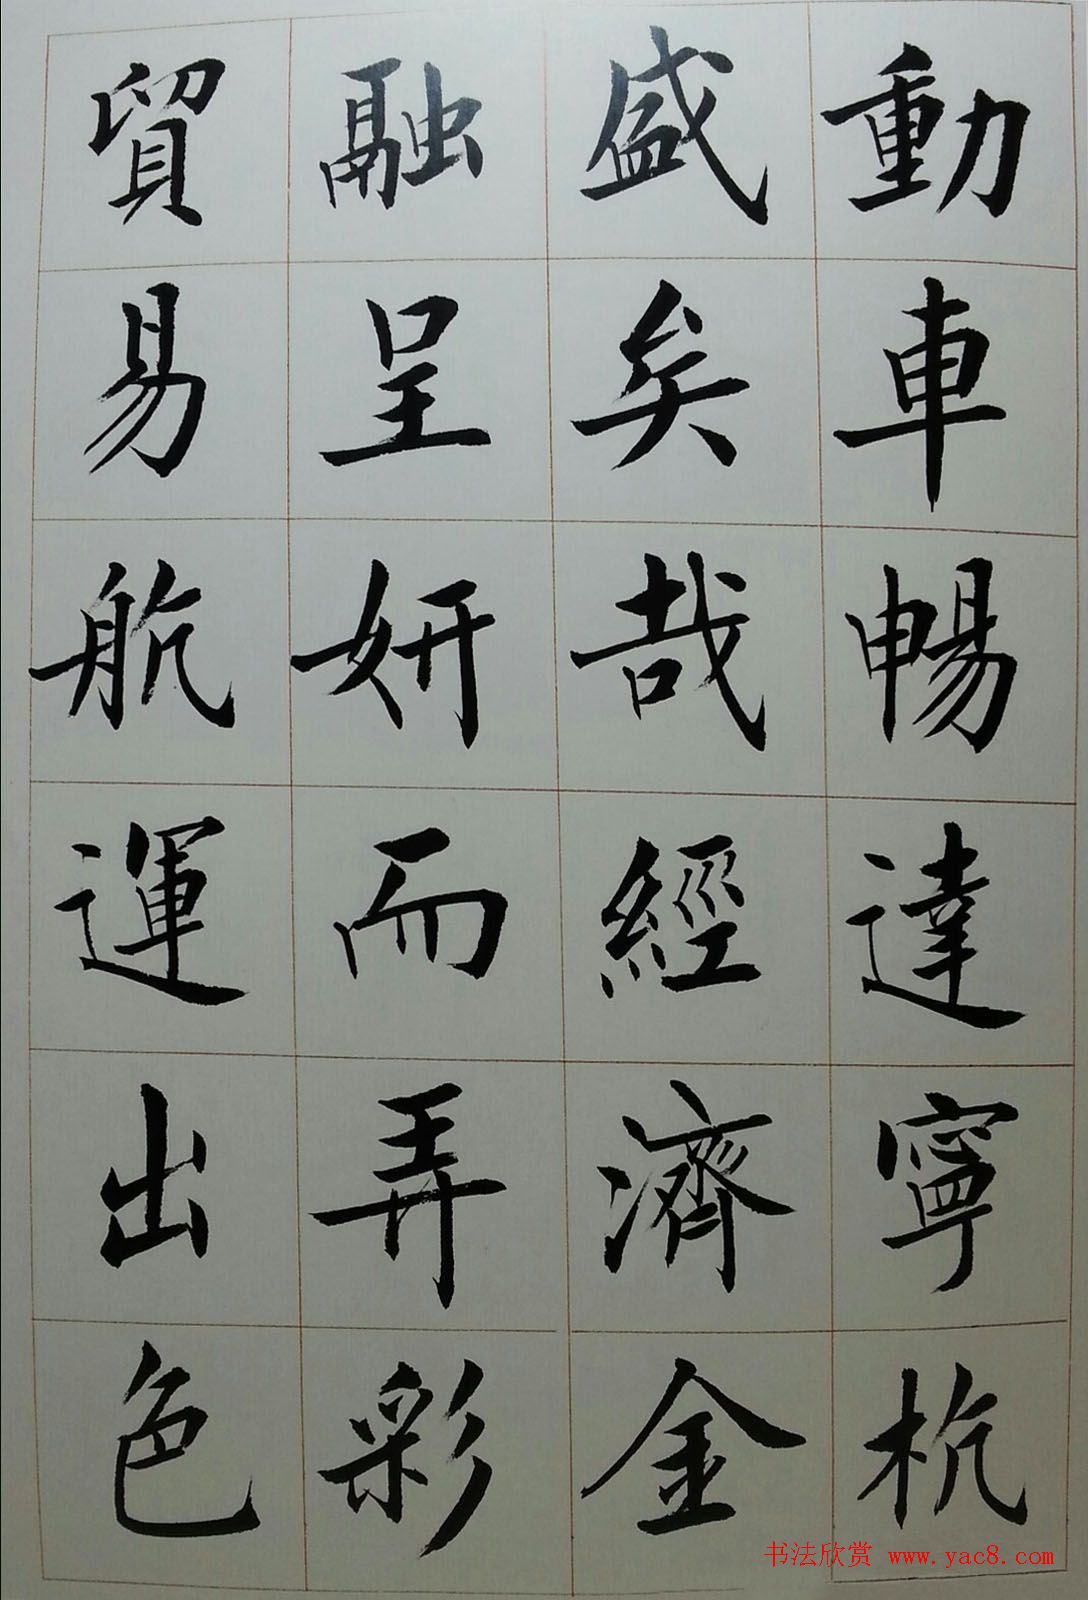 動車暢達寧杭
盛矣哉經濟金
融呈妍而弄彩
貿易航運出色
书法欣赏 www.yac8.com